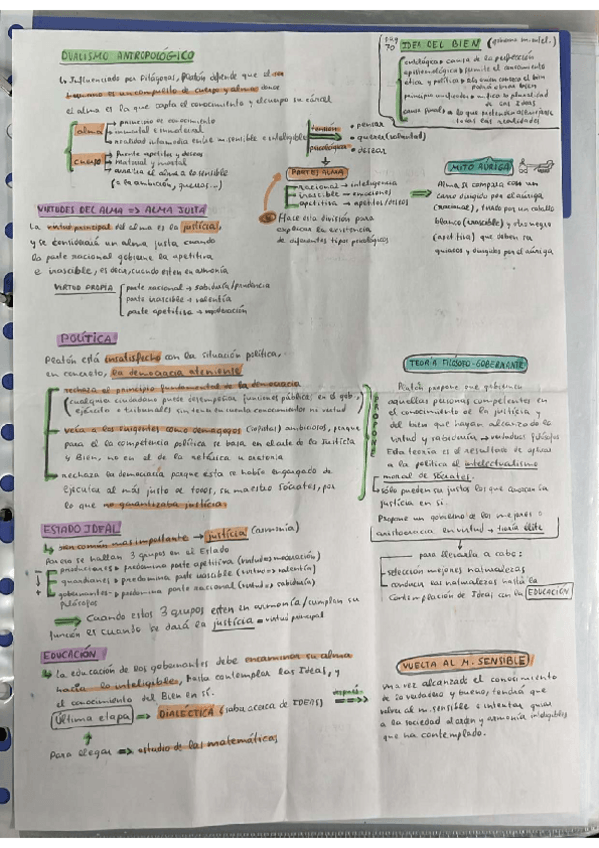 DUALISMO ANTROPOLÓGICO
↳ Influenciado por Pitágoras, Platón defiende que el ser
humano es un compuesto de cuerpo y alma donde
el alma es la que capta el conocimiento y el cuerpo su cárcel
alma
principio de conocimiento
inmortal e inmaterial
realidad intermedia entre m. sensible e inteligible
cuerpo
fuente apetitos y deseos
material y mortal
analiza el alma a lo sensible
(= la ambición, guerras...)
tensión psicológica
• pensar
• querer (voluntad)
• desear
PARTES ALMA
racional → inteligencia
irascible → emociones
apetitiva → apetitos/deseos
Hace esta división para
explicar la existencia
de diferentes tipos psicológicos
pag 70
IDEA DEL BIEN
ontológica → causa de la perfección
epistemológica → permite el conocimiento
ética y política → alguien conoce el bien
podrá obrar bien
principio unificador → unifica la pluralidad
de las Ideas
causa final → a lo que
todas las realidades
MITO AURIGA
Alma se compara con un
carro dirigido por el auriga
(racional), tirado por un caballo
blanco (irascible) y otro negro
(apetitiva) que deben ser
guiados y dirigidos por el auriga
VIRTUDES DEL ALMA => ALMA JUSTA
La virtud principal del alma es la justicia,
y se considerará un alma justa cuando
la parte racional gobierne la apetitiva
e irascible, es decir, cuando estén en armonía
VIRTUD PROPIA
parte racional → sabiduría/prudencia
parte irascible → valentía
parte apetitiva → moderación
POLÍTICA
Platón está insatisfecho con la situación política,
en concreto, la democracia ateniense
rechaza el principio fundamental de la democracia
(cualquier ciudadano puede desempeñar funciones públicas en el gob,
ejército o tribunales sin tener en cuenta conocimientos ni virtud
veía a los dirigentes como demagogos (sofistas) ambiciosos, porque
para él la competencia política se basa en el arte de la Justicia
y Bien, no en el de la retórica u oratoria
rechaza la democracia porque esta se había encargado de
ejecutar al más justo de todos, su maestro Sócrates, por
lo que no garantizaba justicia
PROPONE
TEORÍA FILÓSOFO-GOBERNANTE
Platón propone que gobiernen
aquellas personas competentes en
el conocimiento de la justicia y
del bien que hayan alcanzado la
virtud y sabiduría → verdaderos filósofos
Esta teoría es el resultado de aplicar
a la política el intelectualismo
moral de Sócrates.
↳ sólo pueden ser justos los que conozcan la
justicia en sí.
Propone un gobierno de los mejores =
aristocracia en virtud → teoría élite
para llevarla a cabo:
selección mejores naturalezas
conducir las naturalezas hasta la
contemplación de Ideas con la EDUCACIÓN
ESTADO IDEAL
↳ bien común más importante → justicia (armonía)
Por eso se hallan 3 grupos en el Estado
productores → predomina parte apetitiva (virtud → moderación)
guardianes → predomina parte irascible (virtud → valentía)
gobernantes → predomina parte racional (virtud → sabiduría)
filósofos
Cuando estos 3 grupos estén en armonía/cumplan su
función es cuando se dará la justicia = virtud principal
EDUCACIÓN
↳ la educación de los gobernantes debe encaminar su alma
hacia lo inteligible, hasta contemplar las Ideas, y
el conocimiento del Bien en sí.
Última etapa => DIALÉCTICA (saber acerca de IDEAS)
después
Para llegar => estudio de las matemáticas
VUELTA AL M. SENSIBLE
Una vez alcanzado el conocimiento
de lo verdadero y bueno, tendrá que
volver al m. sensible e intentar guiar
a la sociedad al orden y armonía inteligibles
que ha contemplado.